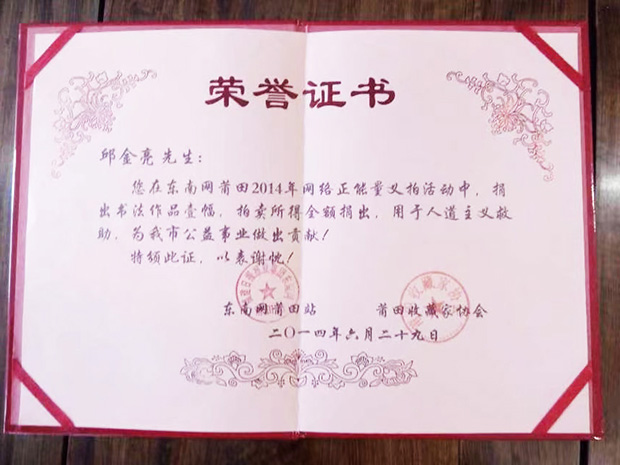 荣誉证书
邱金亮先生:
您在东南网莆田2014年网络正能量义拍活动中,捐
出书法作品壹幅,拍卖所得全额捐出,用于人道主义救
助,为我市公益事业做出贡献!
特颁此证,以表谢忱!
东南网莆田站 莆田收藏家协会
二〇一四年六月二十九日